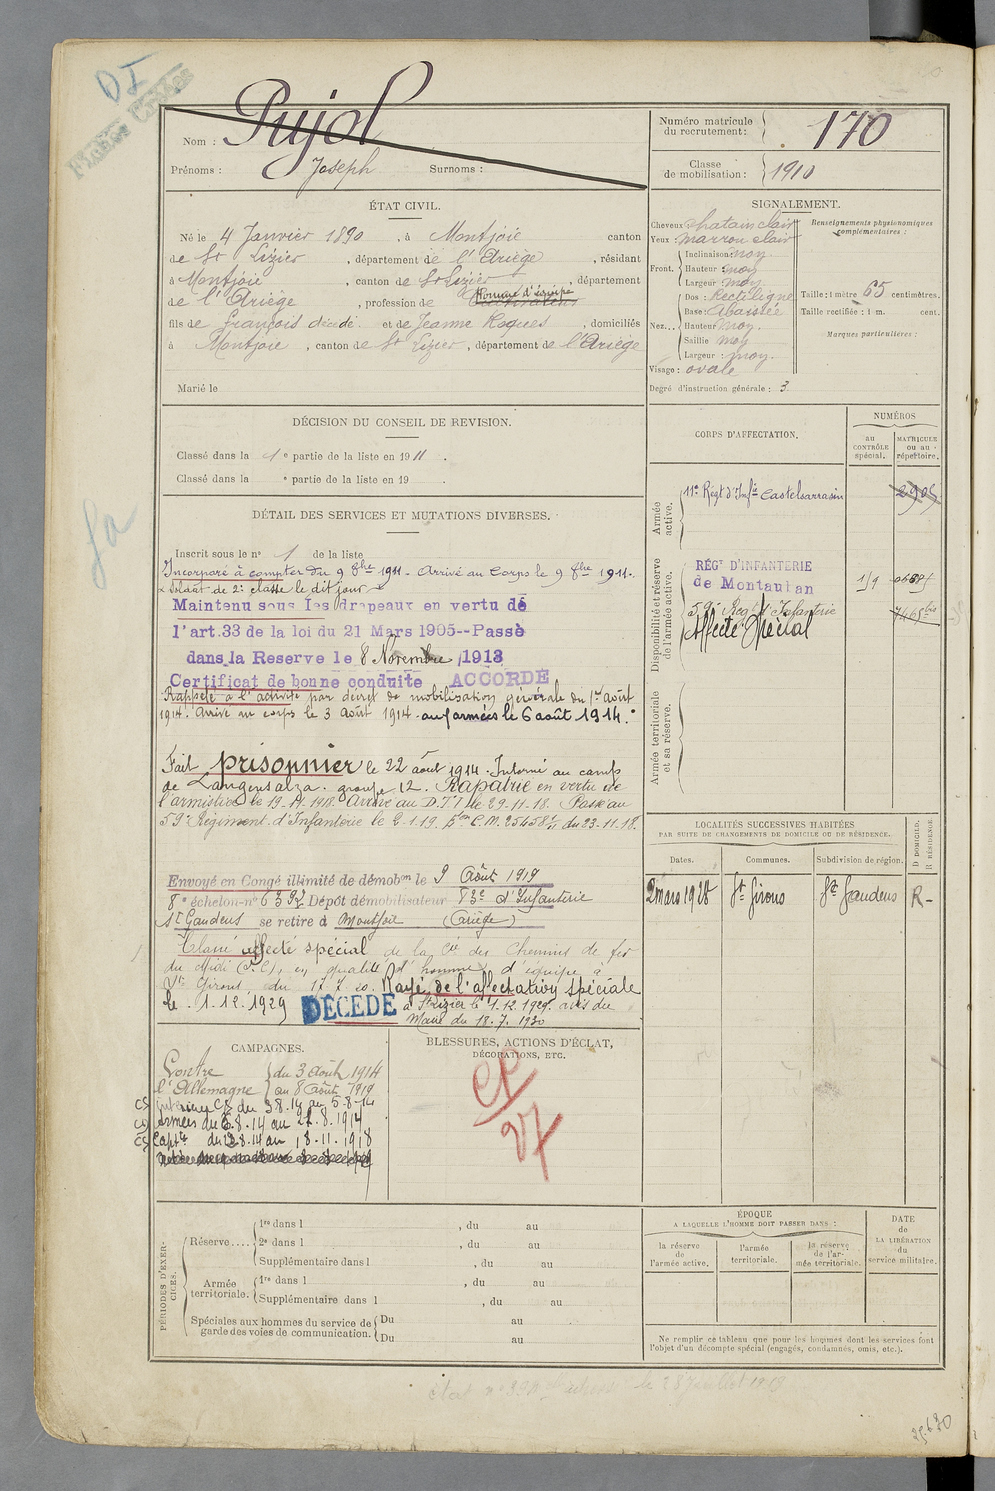 DI
Fiches Croisées
Nom : Pujol
Prénoms : Joseph Surnoms :
Numéro matricule du recrutement : 170
Classe de mobilisation : 1910
ÉTAT CIVIL.
Né le 4 Janvier 1890, à Montjoie canton
de St Lizier, département de l'Ariège, résidant
à Montjoie, canton de St Lizier, département
de l'Ariège, profession de homme d'équipe
fils de François décédé et de Jeanne Roques, domiciliés
à Montjoie, canton de St Lizier, département de l'Ariège
Marié le
SIGNALEMENT.
Cheveux chatain clair
Yeux : marron clair
Front. Inclinaison : moy.
Hauteur : moy
Largeur : moy.
Nez... Dos : Rectiligne
Base : Abaissée
Hauteur moy.
Saillie moy
Largeur : moy.
Visage : ovale
Renseignements physionomiques complémentaires :
Taille : 1 mètre 65 centimètres.
Taille rectifiée : 1 m. cent.
Marques particulières :
Degré d'instruction générale : 3
DÉCISION DU CONSEIL DE REVISION.
Classé dans la 1e partie de la liste en 1911.
Classé dans la e partie de la liste en 19 .
DÉTAIL DES SERVICES ET MUTATIONS DIVERSES.
Inscrit sous le n° 1 de la liste
Incorporé à compter du 9 8bre 1911. Arrivé au Corps le 9 8bre 1911.
Soldat de 2e classe le dit jour
Maintenu sous les drapeaux en vertu de
l'art. 33 de la loi du 21 Mars 1905--Passé
dans la Reserve le 8 Novembre 1913
Certificat de bonne conduite ACCORDÉ
Rappelé à l'activité par décret de mobilisation générale du 1er Août
1914. Arrivé au corps le 3 Août 1914. aux armées le 6 août 1914.
Fait prisonnier le 22 août 1914. Interné au camp
de Langensalza. groupe 12. Rapatrié en vertu de
l'armistice le 19-11-1918. Arrivé au D.T.I le 29-11-18. Passé au
59e Régiment d'Infanterie le 2-1-19. Bon C.M. 25458 1/11 du 23-11-18.
Envoyé en Congé illimité de démobon le 9 Août 1919
8e échelon-no 6392 Dépôt démobilisateur 83e d'Infanterie
St Gaudens se retire à Montjoie (Ariège)
Classé affecté spécial de la Cie des Chemins de fer
du Midi en qualité d'homme d'équipe à
St Girons, du 17.7.20. Rayé de l'affectation spéciale
le 1.12.1929 DÉCÉDÉ à St Lizier le 1.12.1929. avis du
Maire du 18.7.1930
CORPS D'AFFECTATION.
NUMÉROS
au CONTRÔLE spécial.
MATRICULE ou au répertoire.
Armée active.
11e Régt d'Infie Castelsarrasin 2905
Disponibilité et réserve de l'armée active.
RÉGT D'INFANTERIE
de Montauban 1/9
59e Régt d'Infanterie
Affecté Spécial
Armée territoriale et sa réserve.
LOCALITÉS SUCCESSIVES HABITÉES
PAR SUITE DE CHANGEMENTS DE DOMICILE OU DE RÉSIDENCE.
Dates. Communes. Subdivision de région. D DOMICILE. R RÉSIDENCE.
2 mars 1928 St Girons St Gaudens R-
CAMPAGNES.
Contre l'Allemagne du 3 Août 1914 au 8 Août 1919
CS intérieur CS du 3.8.14 au 5-8-14
CD Armées du 6.8.14 au 21.8.1914
CS Captté du 22.8.14 au 18.11.1918
BLESSURES, ACTIONS D'ÉCLAT,
DÉCORATIONS, ETC.
CP
27
PÉRIODES D'EXERCICES.
Réserve.... 1re dans l , du au
2e dans l , du au
Supplémentaire dans l , du au
Armée territoriale. 1re dans l , du au
Supplémentaire dans l , du au
Spéciales aux hommes du service de garde des voies de communication. Du au
Du au
ÉPOQUE
A LAQUELLE L'HOMME DOIT PASSER DANS :
la réserve de l'armée active.
l'armée territoriale.
la réserve de l'armée territoriale.
DATE de LA LIBÉRATION du service militaire.
Ne remplir ce tableau que pour les hommes dont les services font
l'objet d'un décompte spécial (engagés, condamnés, omis, etc.).